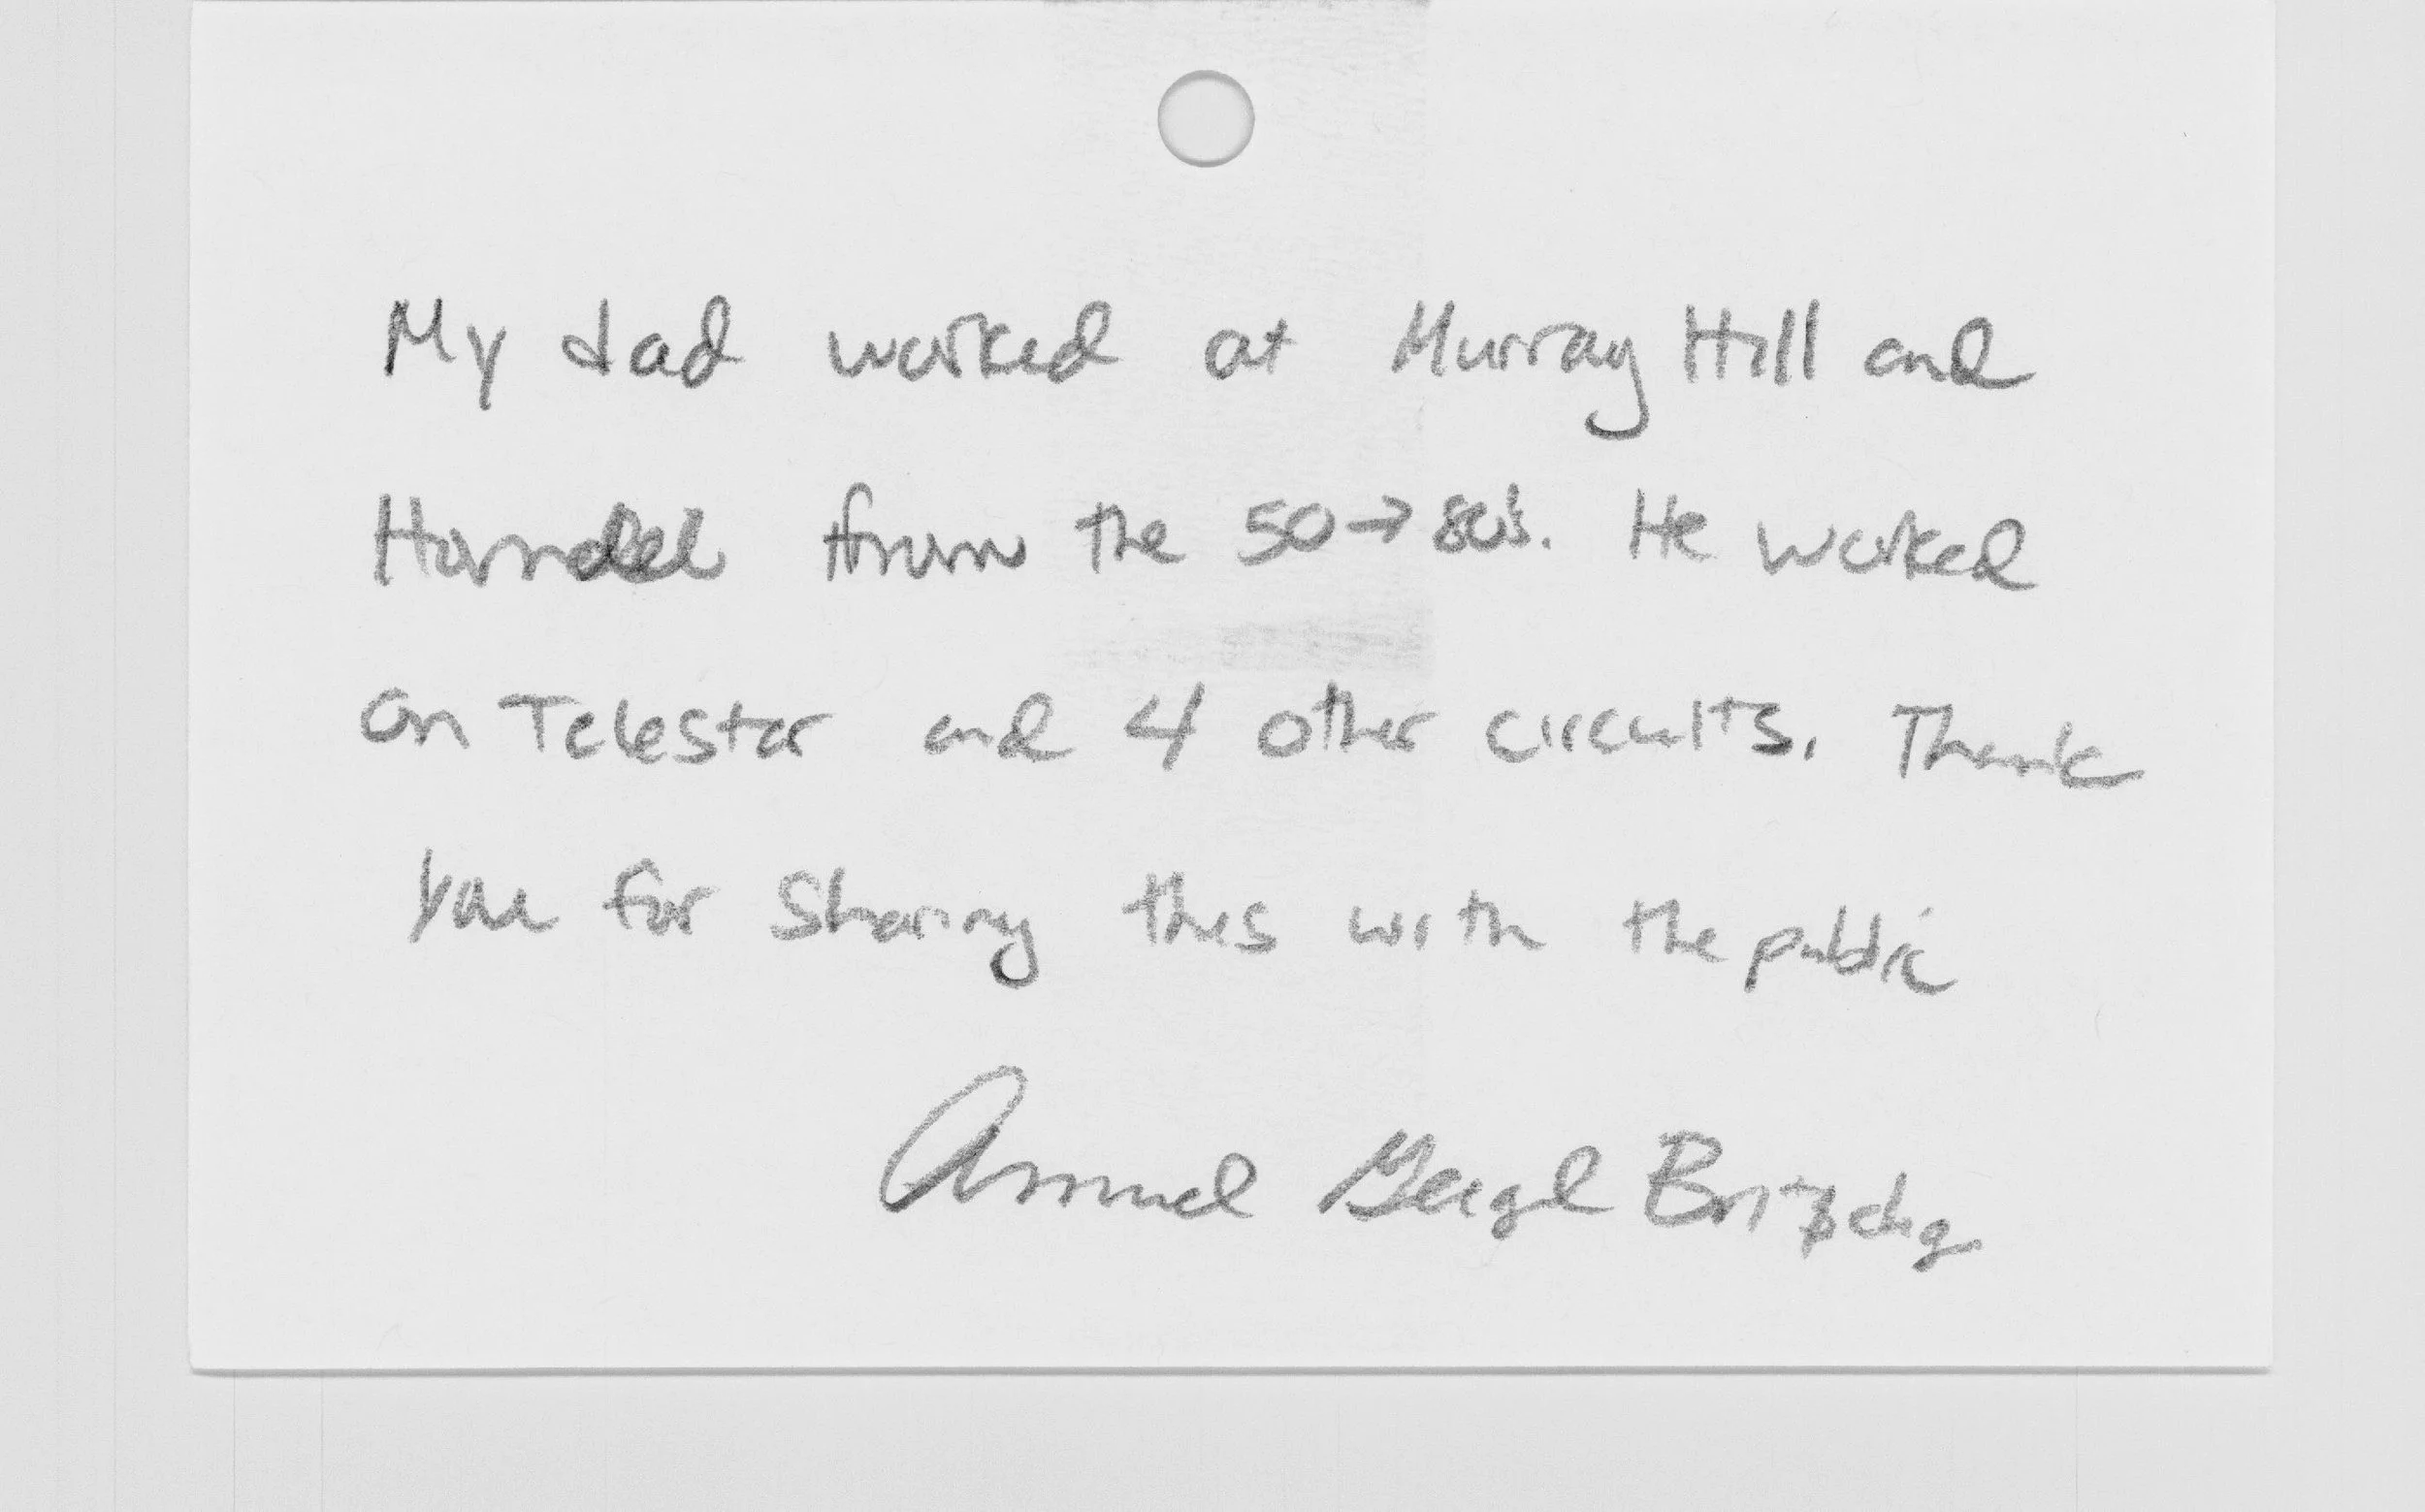 My dad worked at Murray Hill and
Homdel from the 50→80's. He worked
on Telestar and 4 other circuits. Thank
you for sharing this with the public